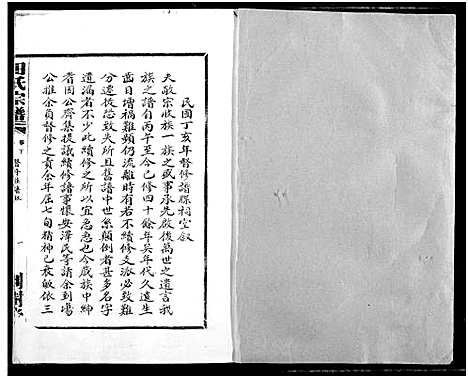 民國丁亥年督修譜牒祠堂敘
夫敬宗收族一族之盛事承先啟後萬世之遺言我
族之譜自丙午至今已修四十餘年矣年代久遠生
齒日增禍難頻仍流離時有若不續修支派必致難
分遷徙恐致失所且舊譜中世系顛倒者甚多名字
遺漏者不少此續修之所以宜急急也今歲族中紳
耆因公齊集提議續修譜事懷安澤民等請余到場
公推余負督修之責余年屆七旬精神已衰敏依三
田氏宗譜
卷下